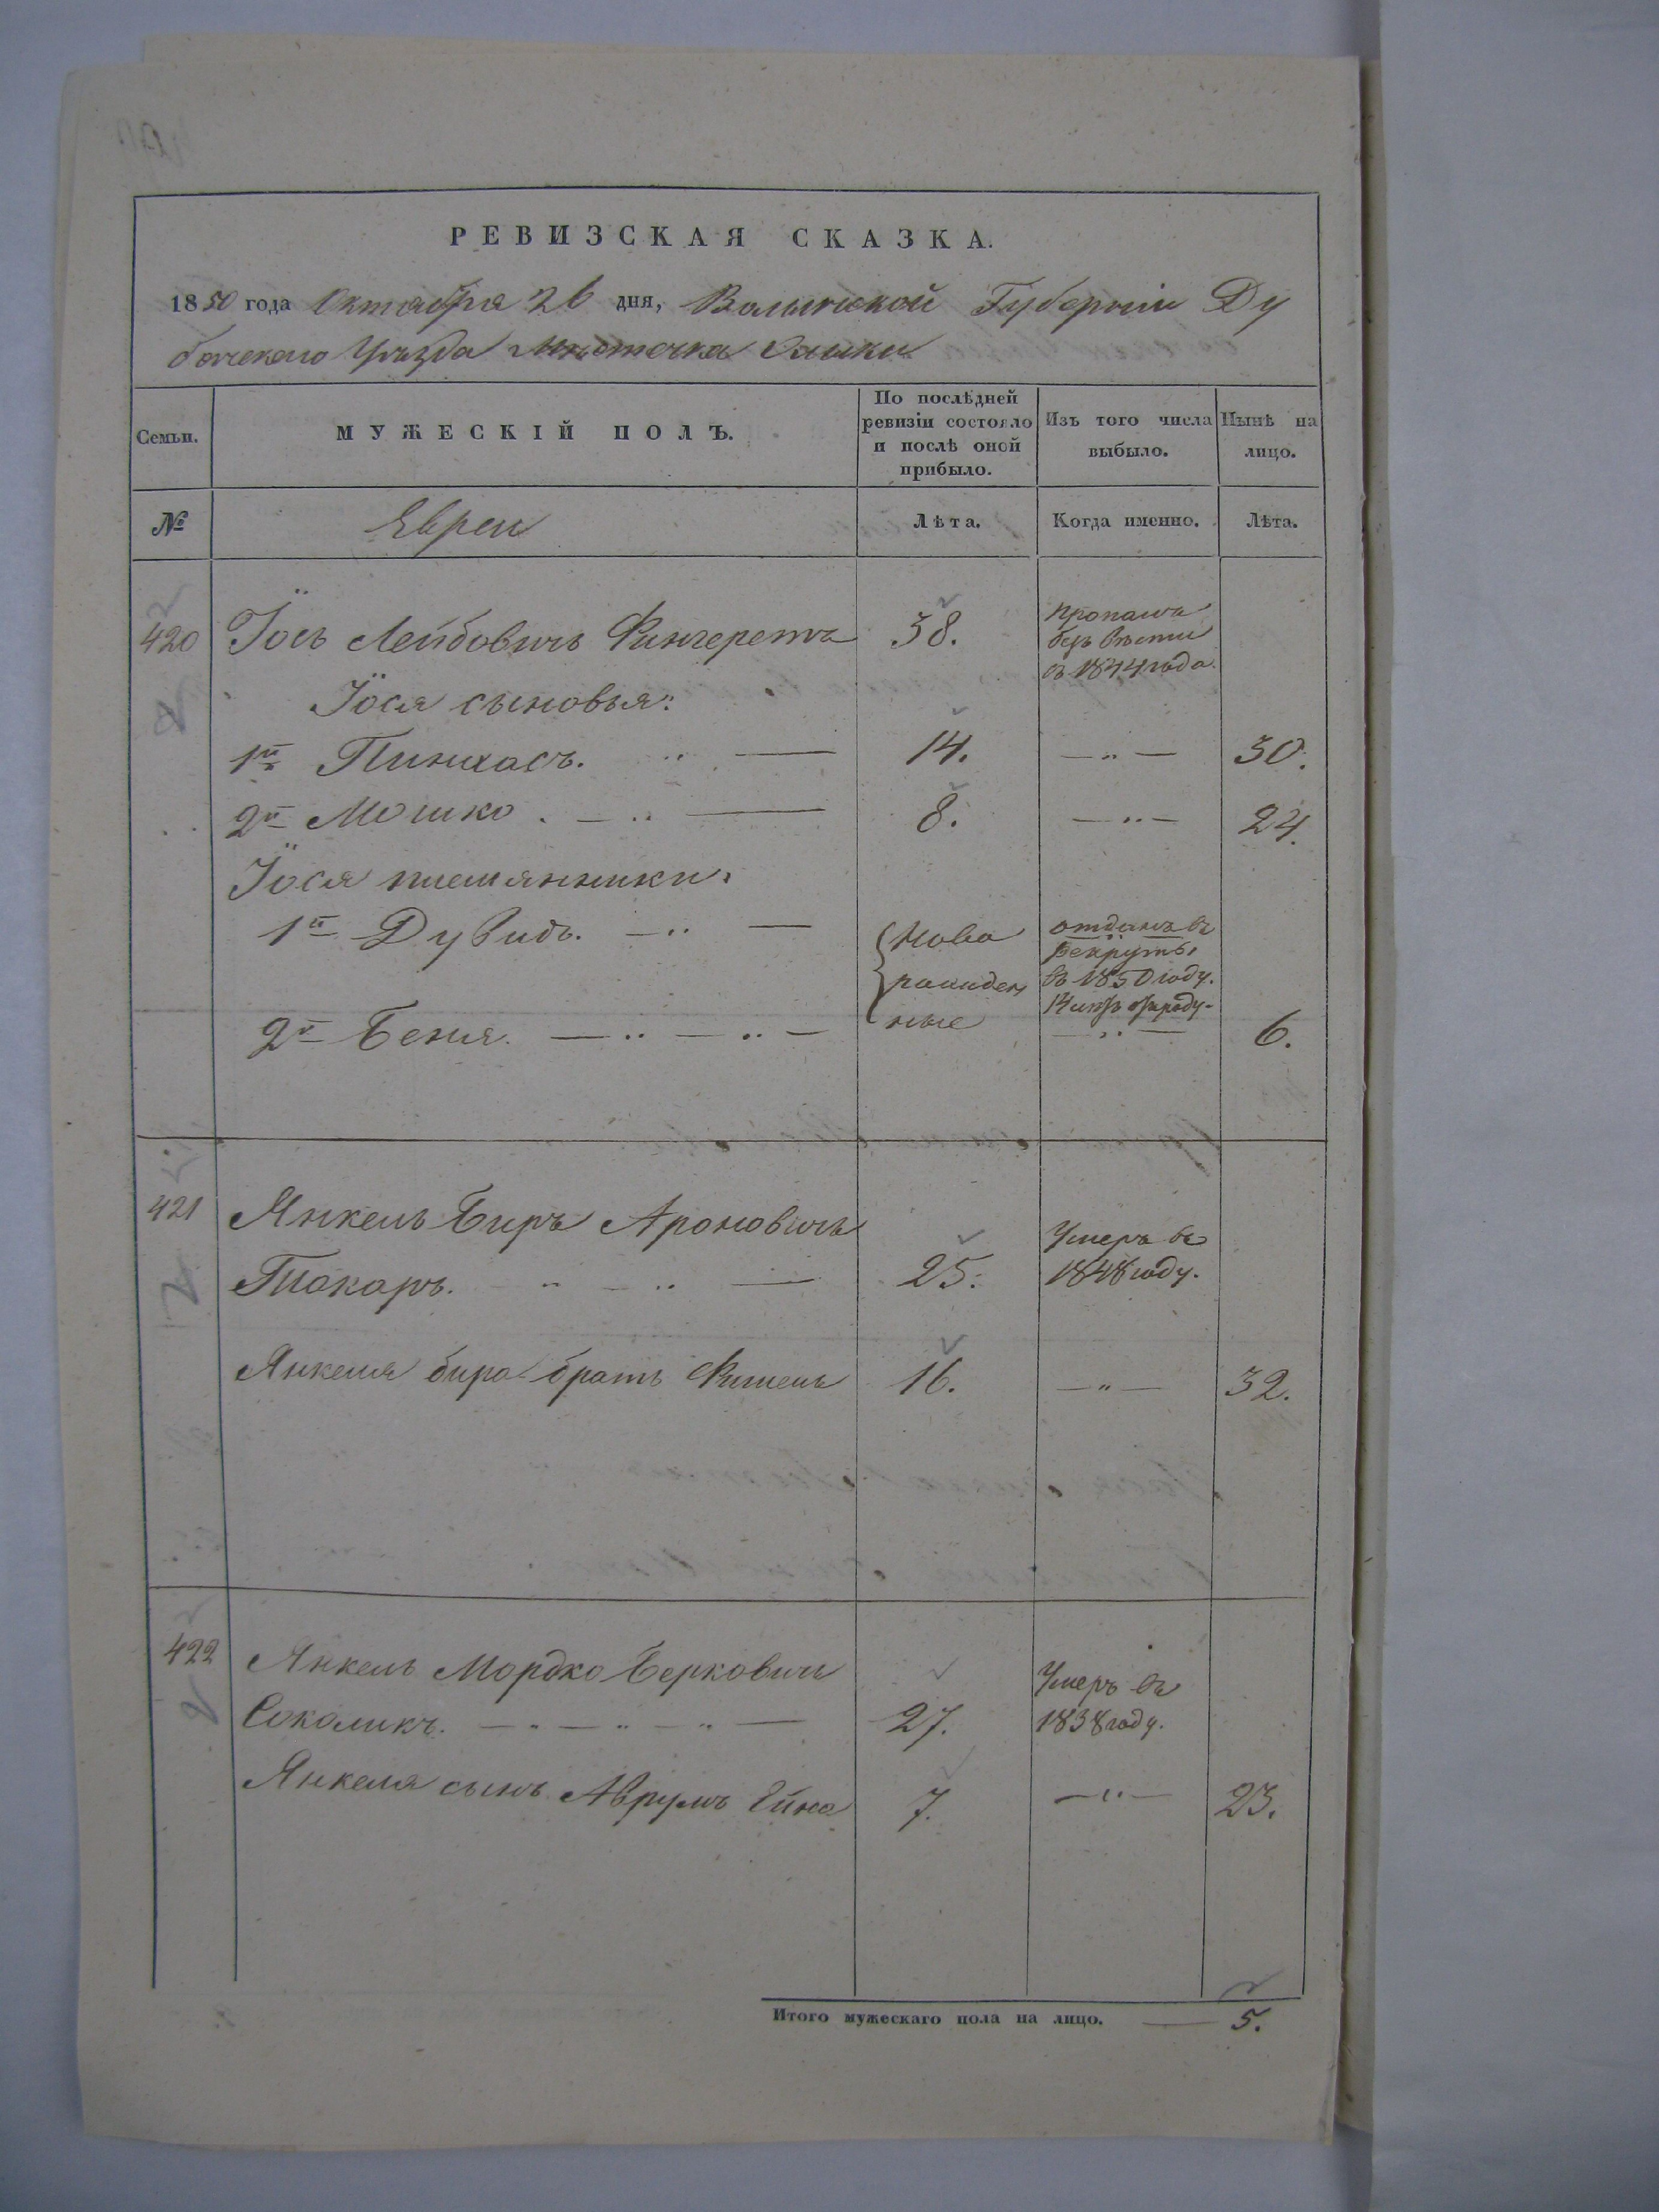 РЕВИЗСКАЯ СКАЗКА.
1850 года Октября 26 дня, Волынской Губерніи Ду
бенскаго Уѣзда Мѣстечка Олыки
Семьи.
МУЖЕСКІЙ ПОЛЪ.
По послѣдней
ревизіи состояло
и послѣ оной
прибыло.
Изъ того числа
выбыло.
Нынѣ на
лицо.
№
Евреи
Лѣта.
Когда именно.
Лѣта.
420 Іось Лейбовичъ Фингеретъ 38.
пропалъ
безъ вѣсти
съ 1844 года.
Іося сыновья:
1й Пинхасъ. 14. 30.
2й Мошко. 8. 24.
Іося племянники:
1й Дувидъ.
Ново
рожден
ные
отданъ въ
рекруты
въ 1850 году.
2й Беня. 6.
421 Янкель Биръ Ароновичъ
Токаръ. 25.
Умеръ въ
1848 году.
Янкеля бира братъ Фишель 16. 32.
422 Янкель Мордко Берковичъ
Соколикъ. 27.
Умеръ въ
1838 году.
Янкеля сынъ Аврумъ Ейно 7. 23.
Итого мужескаго пола на лицо. 5.